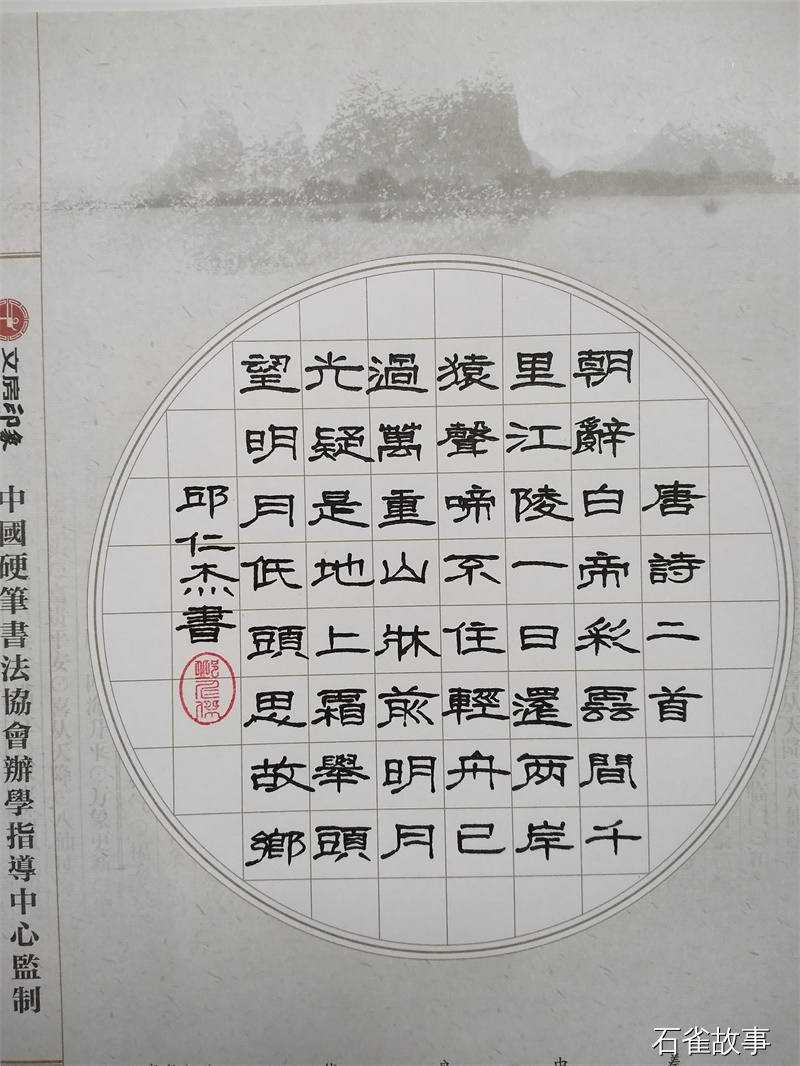 唐詩二首
朝辭白帝彩雲間千
里江陵一日還兩岸
猿聲啼不住輕舟已
過萬重山牀前明月
光疑是地上霜舉頭
望明月低頭思故鄉
邱仁杰書
文房印象
中國硬筆書法協會辦學指導中心監制
石雀故事